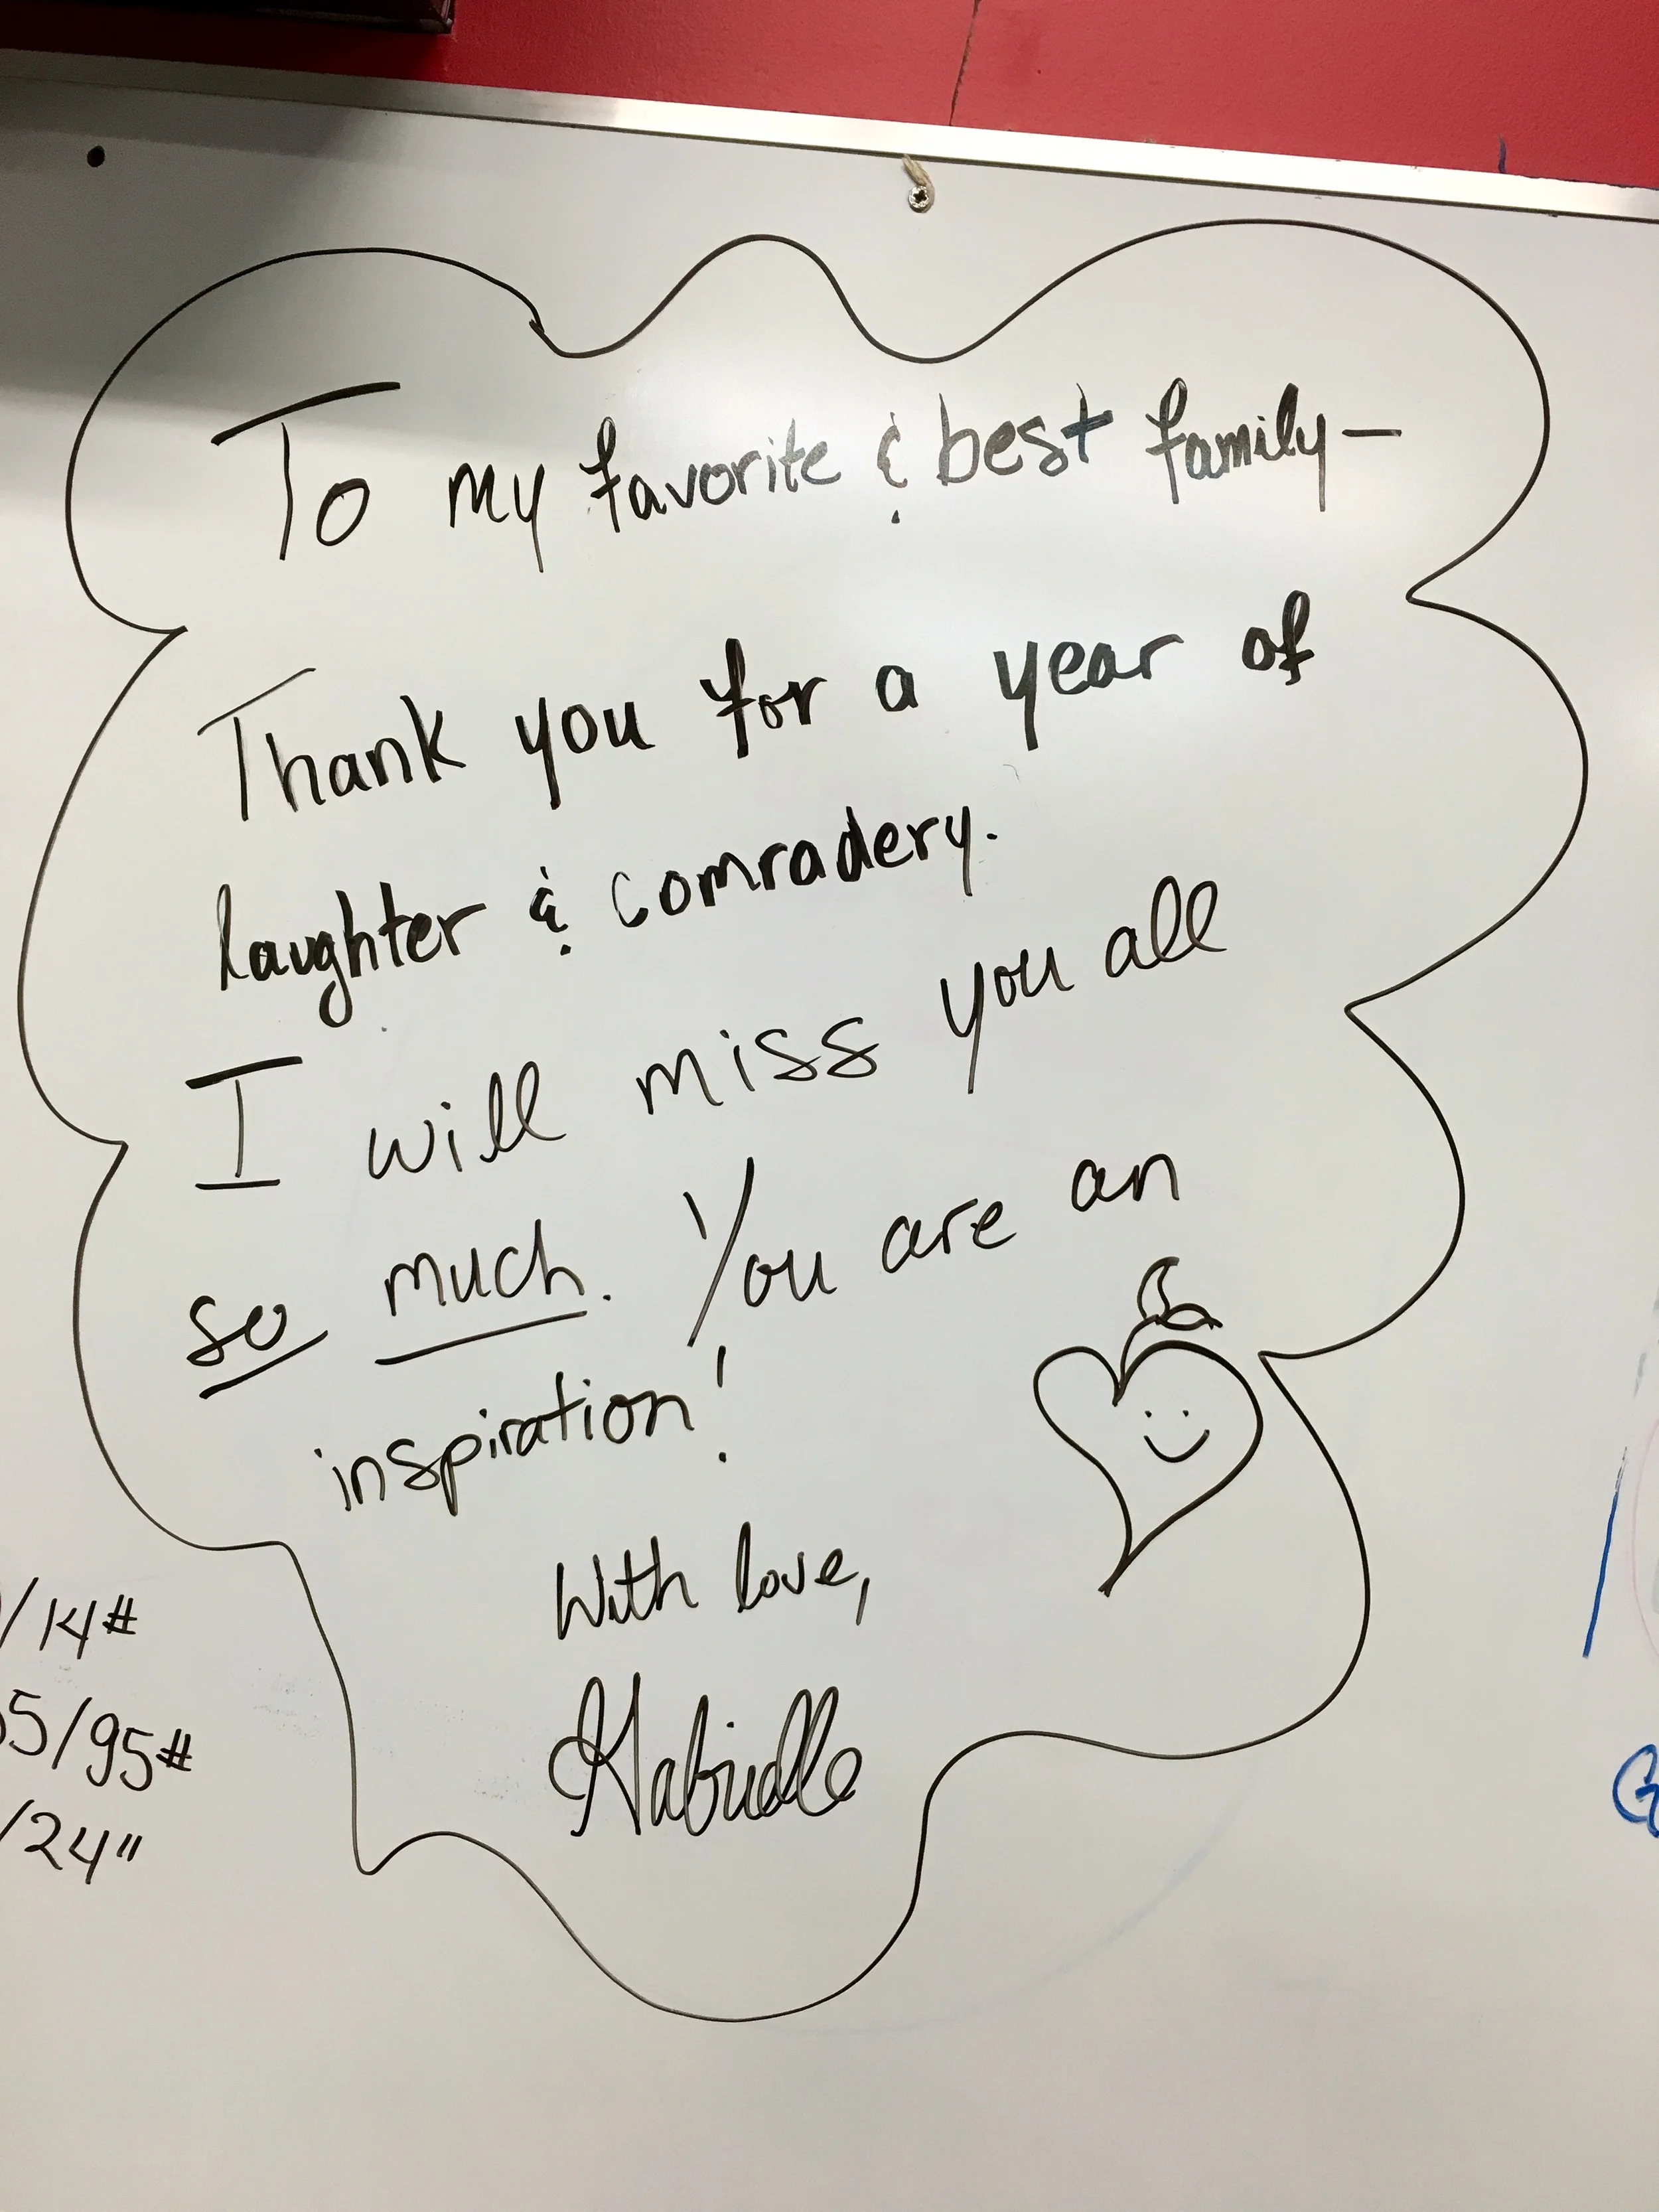 To my favorite & best family-
Thank you for a year of
laughter & comradery.
I will miss you all
so much. You are an
inspiration!
With love,
Gabrielle
/14#
5/95#
/24"